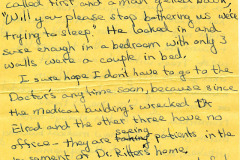 called first and a man yelled back,
"Will you please stop bothering us we're
trying to sleep". He looked in and
sure enough in a bedroom with only 3
walls were a couple in bed.
I sure hope I don't have to go to the
Doctor's any time soon, because since
the medical building's wrecked Dr
Elrod and the other three have no
office - they are seeing patients in the
basement of Dr. Ritter's home.